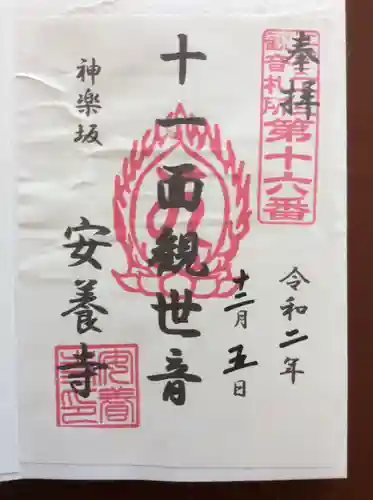 奉拝
第十六番
令和二年
十二月五日
十一面観世音
神楽坂
安養寺